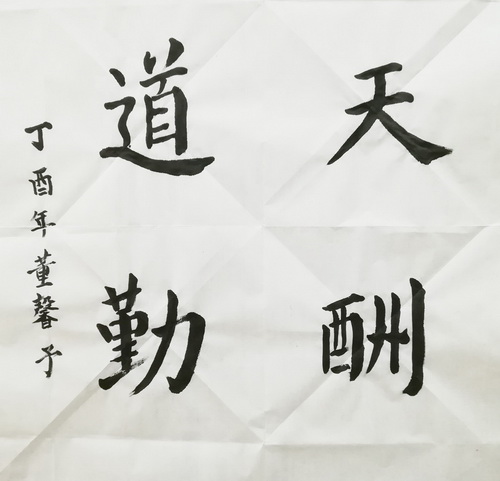 天道
酬勤
丁酉年董馨予